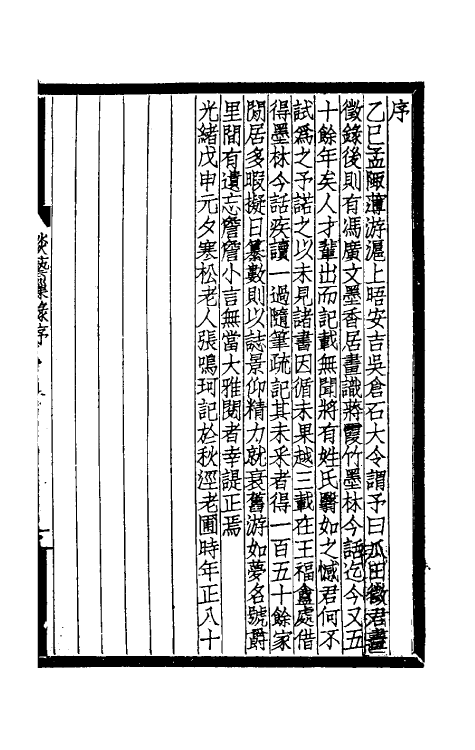 序
乙巳孟陬薄游滬上晤安吉吳倉石大令謂予曰瓜田徵君畫
徵錄後則有馮廣文墨香居畫識蔣霞竹墨林今話迄今又五
十餘年矣人才輩出而記載無聞將有姓氏翳如之憾君何不
試爲之予諾之以未見諸書因循未果越三載在王福盦處借
得墨林今話疾讀一過隨筆疏記其未釆者得一百五十餘家
閒居多暇擬日纂數則以誌景仰精力就衰舊游如夢名號爵
里間有遺忘詹詹小言無當大雅閱者幸諟正焉
光緒戊申元夕寒松老人張鳴珂記於秋涇老圃時年正八十
談藝瑣錄序